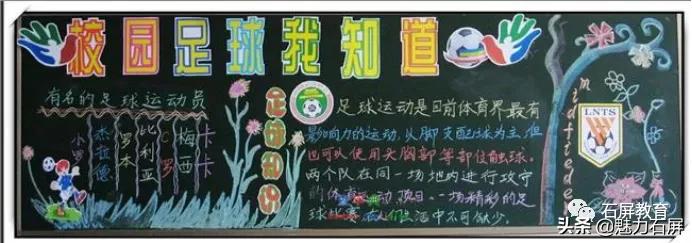 校园足球我知道
有名的足球运动员
小罗
杰拉德
罗本
比利亚
C罗
梅西
卡卡
足球知识
足球运动是目前体育界最有
影响力的运动,从脚支配球为主,但
也可以使用头胸部等部位触球。
两个队在同一场地内进行攻守
的体育运动项目。一场精彩的足
球比赛
生活中不可缺少。
midfielder
LNTS
石屏教育
头条@魅力石屏